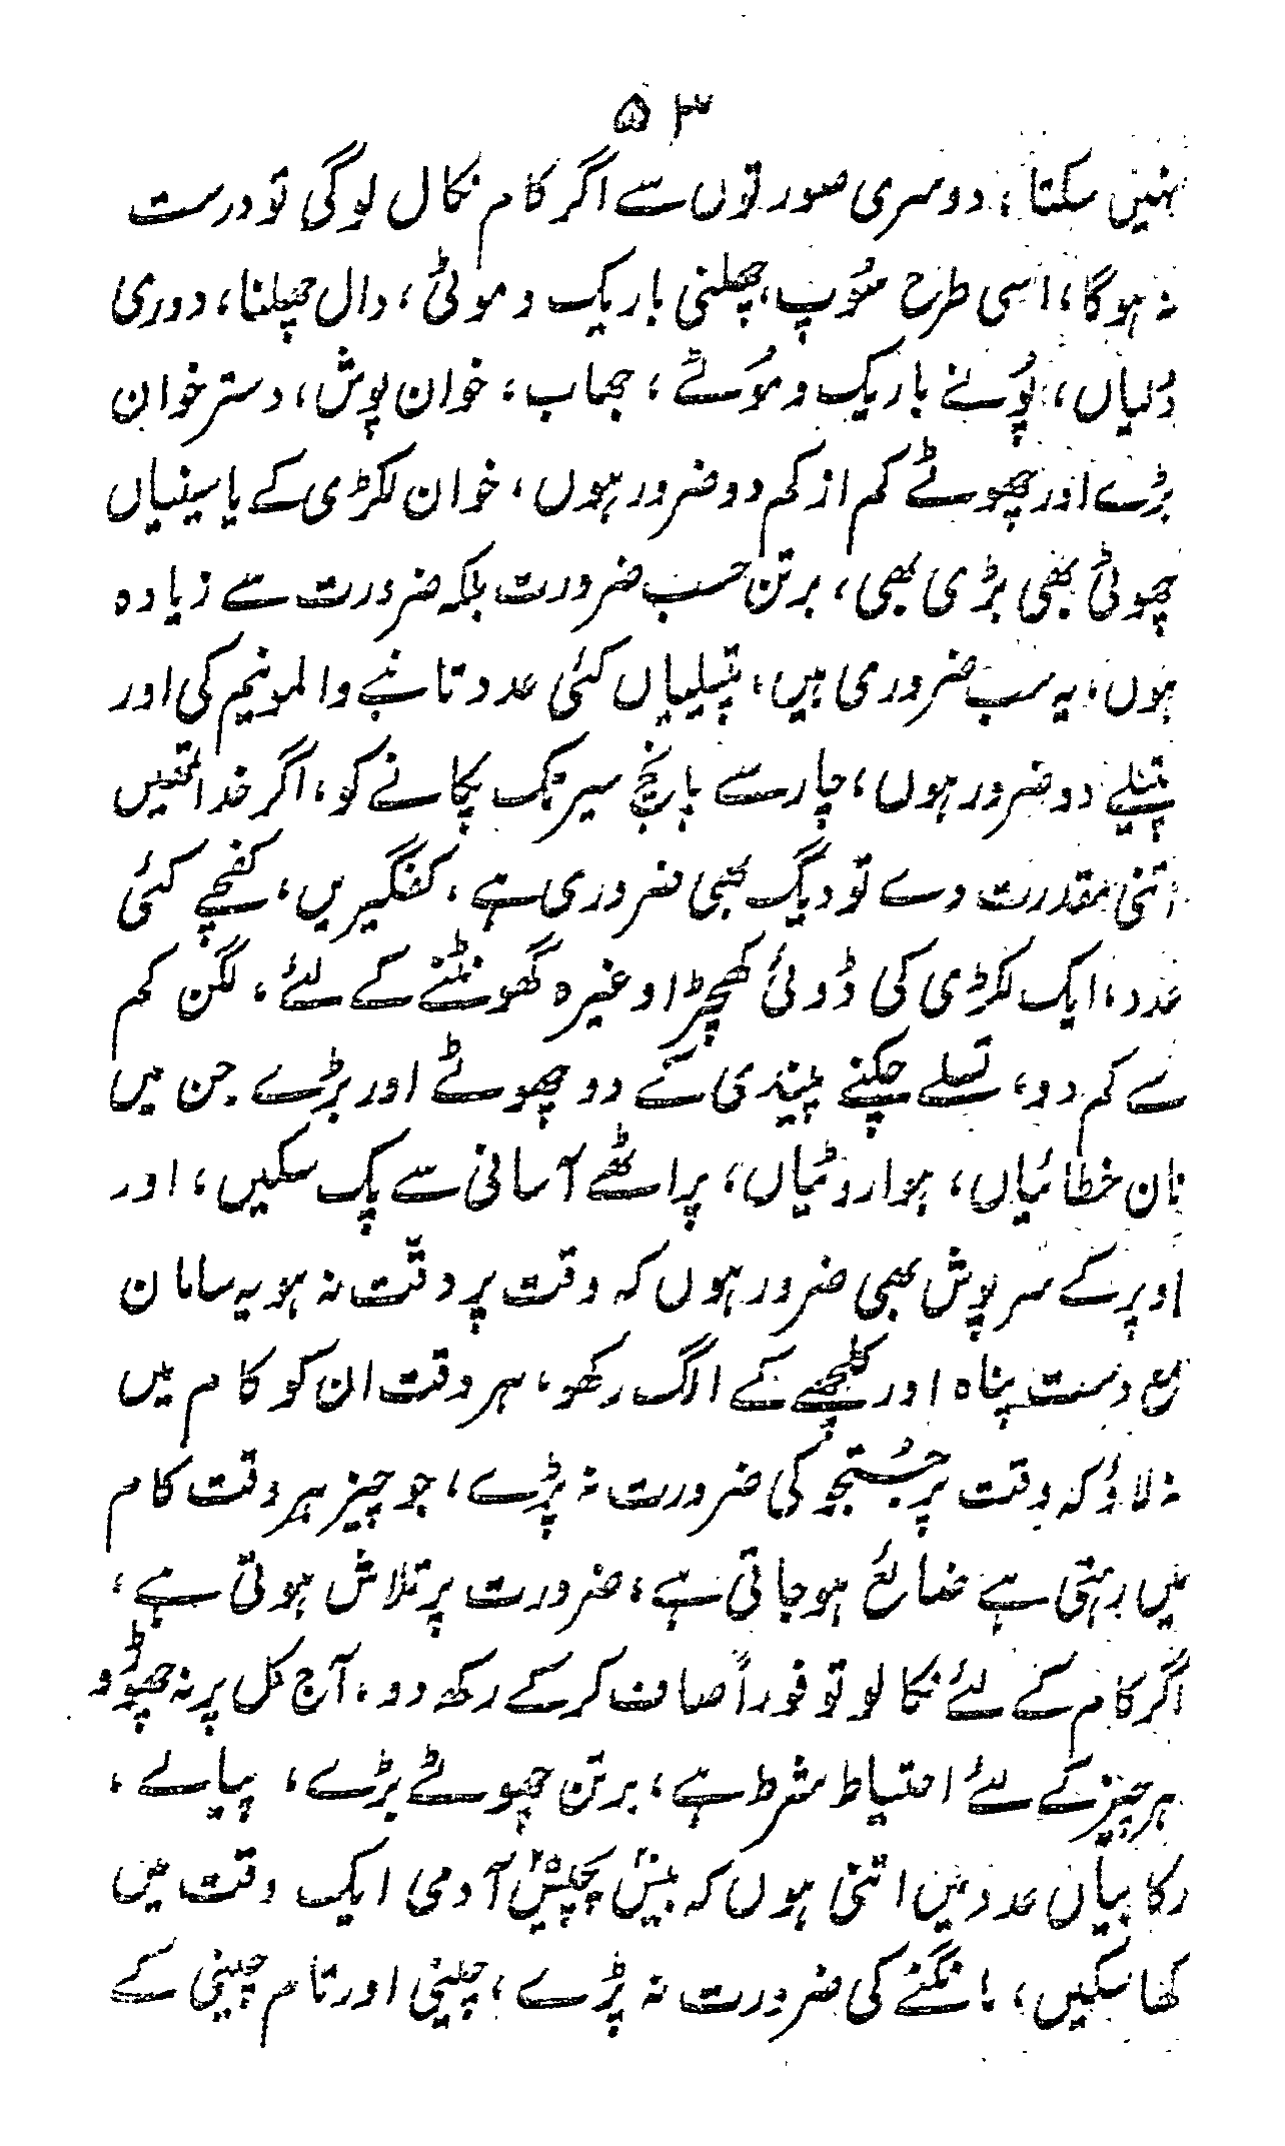 ۵۳
نہیں سکتا، دوسری صورتوں سے اگر کام نکال لوگی تو درست
نہ ہوگا، اسی طرح سُوپ، چھلنی باریک و موٹی، دال چھلنا، دوری
ڈلیاں، پُونے باریک و موُٹے، چھاب، خوان پوش، دسترخوان
بڑے اور چھوٹے کم از کم دو ضرور ہوں، خوان لکڑی کے یا سینیاں
چھوٹی بھی بڑی بھی، برتن حسب ضرورت بلکہ ضرورت سے زیادہ
ہوں، یہ سب ضروری ہیں، پتیلیاں کئی عدد تانبے و المونیم کی اور
پتیلے دو ضرور ہوں، چار سے پانچ سیر تک پکانے کو، اگر خدا تمھیں
اتنی مقدرت دے تو دیگ بھی ضروری ہے، کفگیریں، کفچے کئی
عدد، ایک لکڑی کی ڈوئی کھچڑا وغیرہ گھونٹنے کے لئے، لگن کم
سے کم دو، تسلے چکنے پیندی کے دو چھوٹے اور بڑے جن میں
نان خطائیاں، ہوا روٹیاں، پراٹھے آسانی سے پک سکیں، اور
اوپر کے سرپوش بھی ضرور ہوں کہ وقت پر دقّت نہ ہو یہ سامان
مع دست پناہ اور کلچھے کے الگ رکھو، ہر وقت ان کو کام میں
نہ لاؤ کہ وقت پر جُستجو کی ضرورت نہ پڑے، جو چیز ہر وقت کام
میں رہتی ہے ضائع ہو جاتی ہے، ضرورت پر تلاش ہوتی ہے،
اگر کام کے لئے نکالو تو فوراً صاف کر کے رکھ دو، آج کل پر نہ چھوڑو
ہر چیز کے لئے احتیاط شرط ہے، برتن چھوٹے بڑے، پیالے،
رکابیاں عدد میں اتنی ہوں کہ بیس پچیس آدمی ایک وقت میں
کھا سکیں، مانگنے کی ضرورت نہ پڑے، چینی اور تام چینی کے